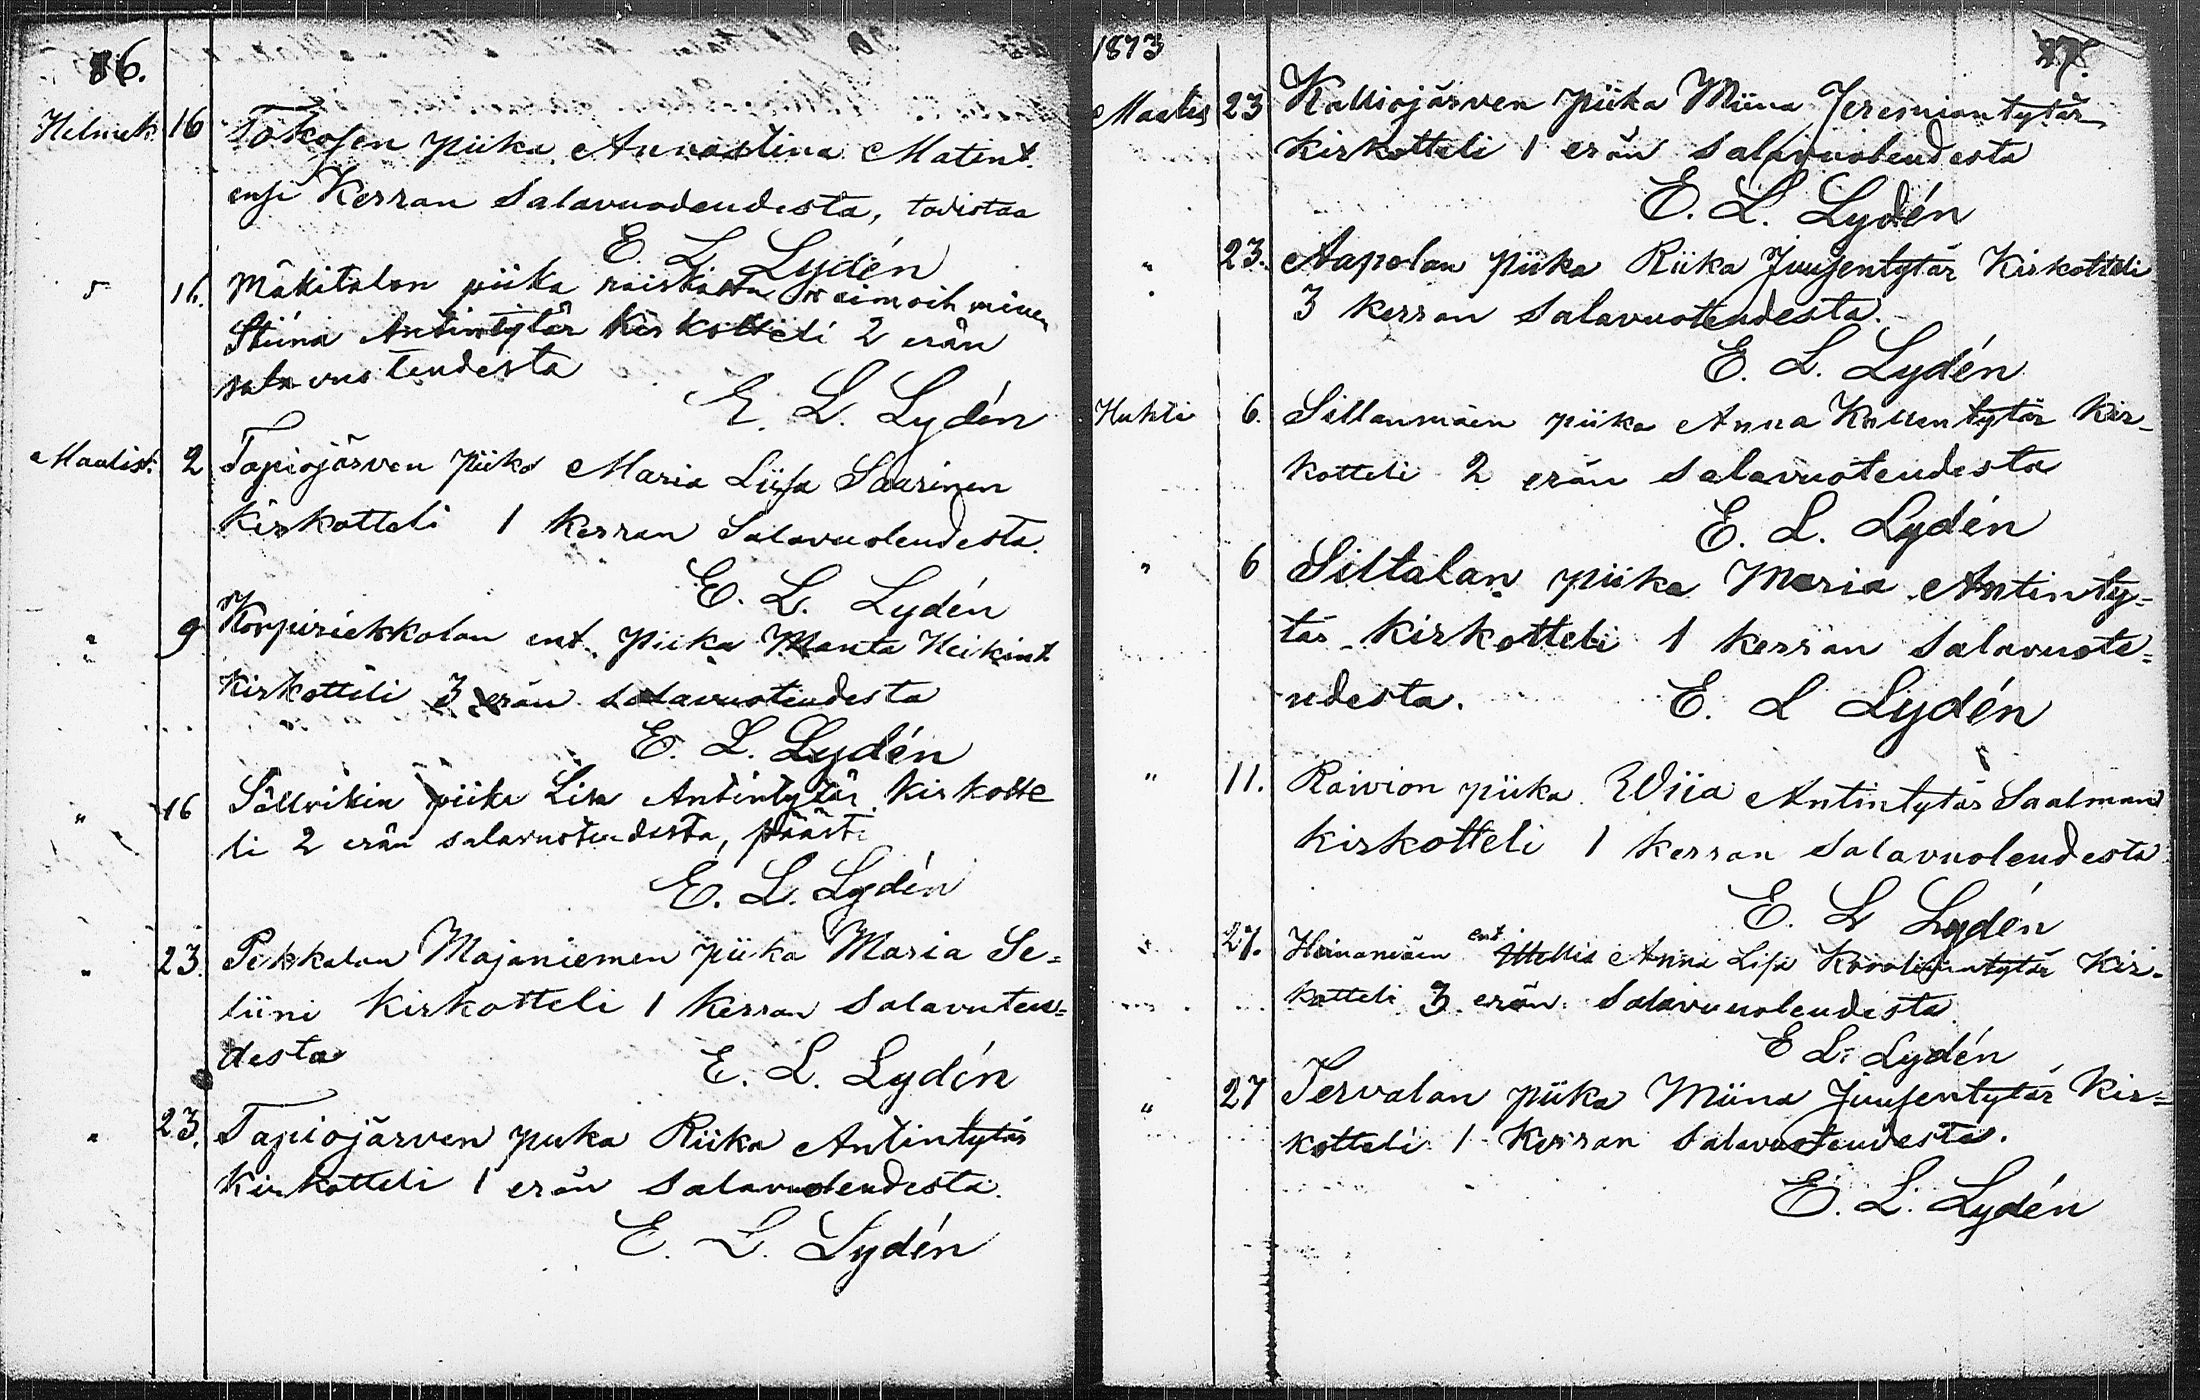 86.
Helmik 16 Tokosen piika Annastina Matint.
ensi Kerran Salavuodendesta, todistaa
E L Lydén
" 16. Mäkitalon piika
Stiina Antintytär Kirkotteli 2 erän
salavuotendesta
E. L. Lydén
Maalisk. 2 Tapiojärven piika Maria Liisa Saarinen
Kirkotteli 1 Kerran Salavuotendesta.
E. L. Lydén
" 9 Korpiriekkolan ent. piika Manta Heikint
Kirkotteli 3 erän salavuotendesta
E. L. Lydén
" 16 Sällvikin piika Lisa Antintytär Kirkotte
li 2 erän salavuotendesta, päästi
E. L. Lydén
" 23. Pekkalan Majaniemen piika Maria Se=
liini Kirkotteli 1 Kerran Salavuten=
desta
E. L. Lydén
" 23. Tapiojärven piika Riika Antintytär
Kirkotteli 1 erän Salavuotendesta.
E. L. Lydén
1873
87.
Maalis 23 Kalliojärven piika Miina Jeremiantytär
Kirkotteli 1 erän Salavuotendesta
E. L. Lydén
" 23. Aapolan piika Riika Juusentytär Kirkotteli
3 kerran Salavuotendesta.
E. L. Lydén
Huhti 6. Sillanmäen piika Anna Kallentytär Kir-
kotteli 2 erän Salavuotendesta
E. L. Lydén
" 6 Siltalan piika Maria Antinty=
tär Kirkotteli 1 kerran Salavuote=
ndesta. E. L Lydén
" 11. Raivion piika Wiia Antintytär Saalman
Kirkotteli 1 kerran Salavuotendesta
E. L Lydén
" 27. Heinamäen ent Anna Lisa Karolintytär Kir-
kotteli 3 erän Salavuotendesta
E L. Lydén
" 27 Tervalan piika Miina Juusentytär Kir=
kotteli 1 Kerran Salavuotendesta.
E. L. Lydén